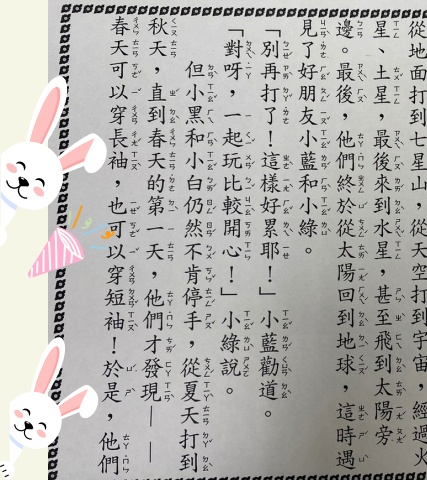 從地面打到七星山，從天空打到宇宙，經過火
星、土星，最後來到水星，甚至飛到太陽旁
邊。最後，他們終於從太陽回到地球，這時遇
見了好朋友小藍和小綠。
「別再打了！這樣好累耶！」小藍勸道。
「對呀，一起玩比較開心！」小綠說。
但小黑和小白仍然不肯停手，從夏天打到
秋天，直到春天的第一天，他們才發現——
春天可以穿長袖，也可以穿短袖！於是，他們